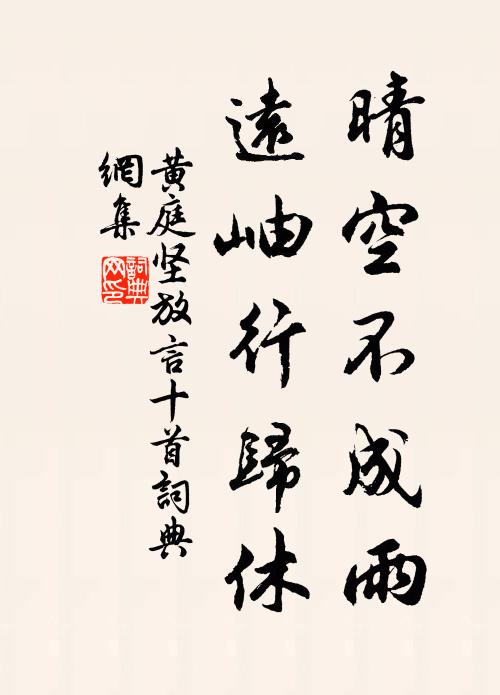 晴空不成雨
遠岫行歸休
黄庭坚放言十首詞典
網集
詞典
网印